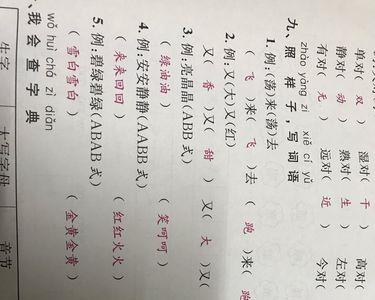 单对( 双 ) 湿对( 干 ) 高对(
静对( 动 ) 熟对( 生 ) 左对(
有对( 无 ) 远对( 近 ) 今对(
zhào yàng zi xiě cí yǔ
九、照 样 子，写 词 语
1. 例：(荡)来(荡)去
( 飞 )来( 飞 )去 ( 跑 )来( 跑
2. 例：又(大)又(红)
又( 香 )又( 甜 ) 又( 大 )又(
3. 例：亮晶晶(ABB 式)
( 绿油油 ) ( 笑呵呵 )
4. 例：安安静静(AABB 式)
( 来来回回 ) ( 红红火火 )
5. 例：碧绿碧绿(ABAB 式)
( 雪白雪白 ) ( 金黄金黄 )
wǒ huì chá zì diǎn
、我 会 查 字 典
生字 大写字母 音节